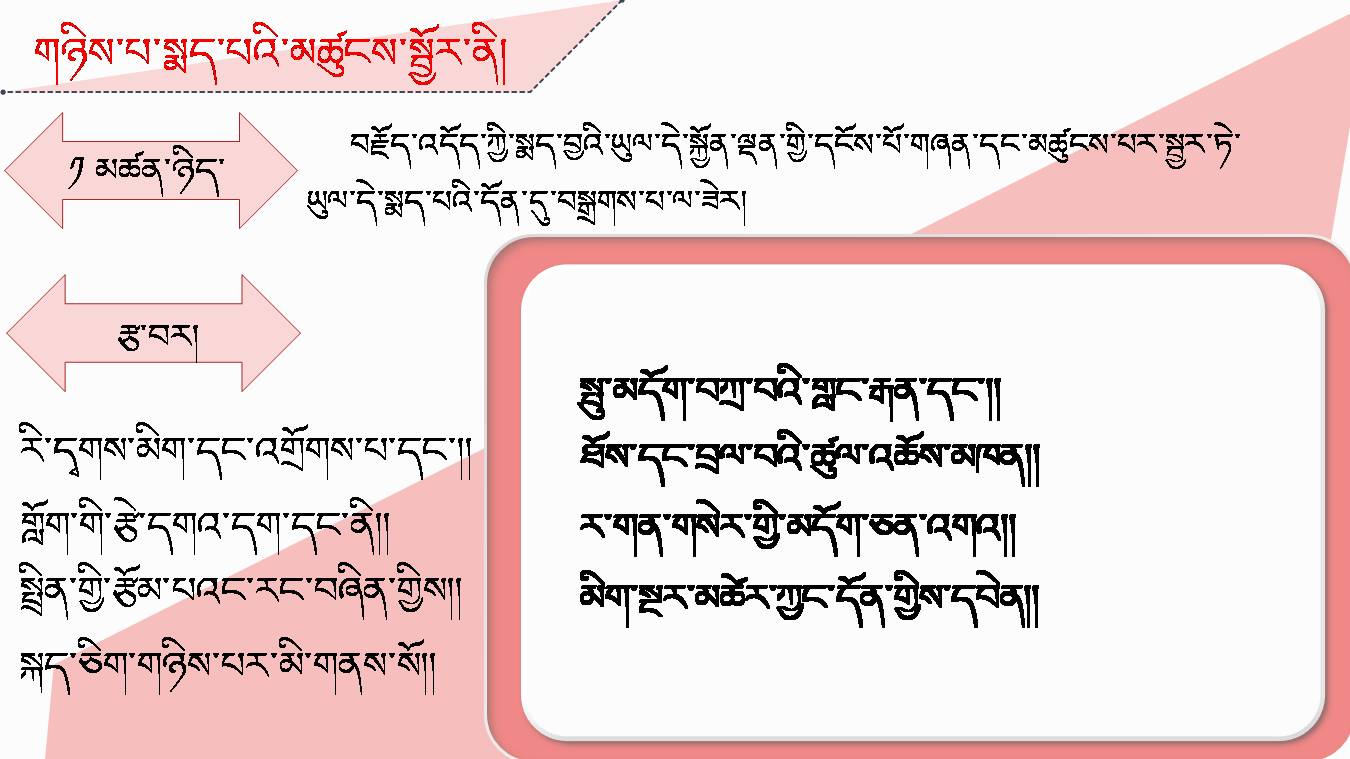 གཉིས་པ་སྨད་པའི་མཚུངས་སྦྱོར་ནི།
༡ མཚན་ཉིད་
བརྗོད་འདོད་ཀྱི་སྨད་བྱའི་ཡུལ་དེ་སྐྱོན་ལྡན་གྱི་དངོས་པོ་གཞན་དང་མཚུངས་པར་སྦྱར་ཏེ་
ཡུལ་དེ་སྨད་པའི་དོན་དུ་བསྒྲགས་པ་ལ་ཟེར།
རྩ་བར།
རི་དྭགས་མིག་དང་འགྲོགས་པ་དང་༎
གློག་གི་རྩེ་དགའ་དག་དང་ནི༎
སྤྲིན་གྱི་རྩོམ་པའང་རང་བཞིན་གྱིས༎
སྐད་ཅིག་གཉིས་པར་མི་གནས་སོ༎
སྤུ་མདོག་བཀྲ་བའི་གླང་རྒན་དང་༎
ཐོས་དང་བྲལ་བའི་ཚུལ་འཆོས་མཁན༎
ར་གན་གསེར་གྱི་མདོག་ཅན་འགའ༎
མིག་སྔར་མཚེར་ཀྱང་དོན་གྱིས་དབེན༎